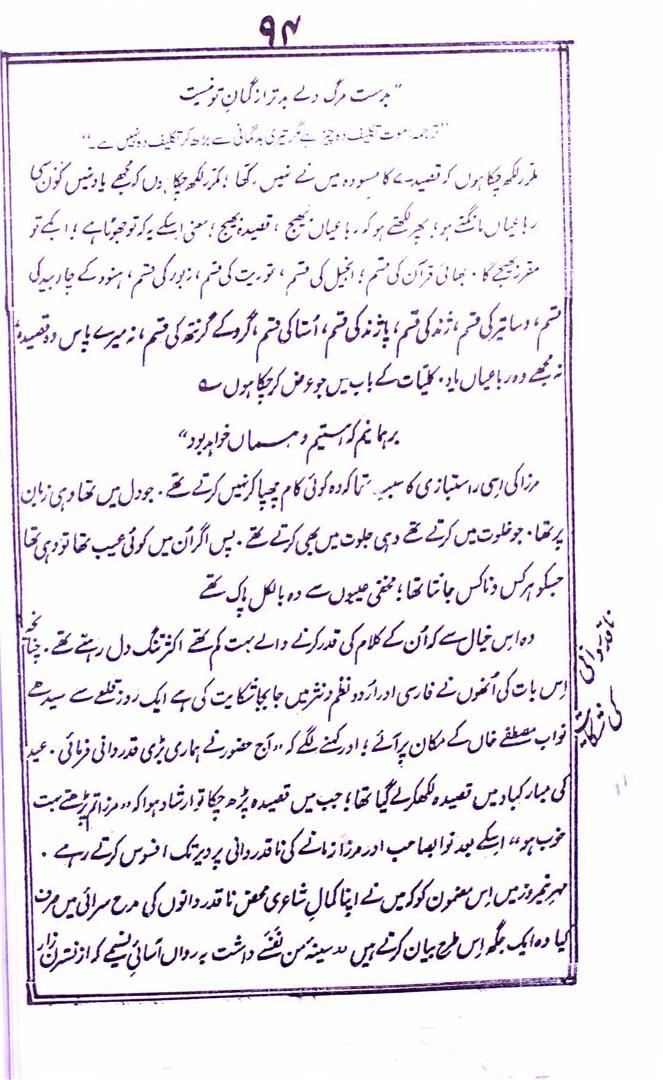 ۹۴
"بدست مرگ ولے بدتر از گمانِ تو نیست
"ترجمہ۔ موت تکلیف دہ چیز ہے مگر تیری بدگمانی سے بڑھ کر تکلیف دہ نہیں ہے۔"
مکرر لکھ چکا ہوں کہ قصیدے کا مسودہ میں نے نہیں رکھا؛ مکرر لکھ چکا ہوں کہ مجھے یاد نہیں کون سی
رباعیاں مانگتے ہو؛ پھر لکھتے ہو کہ رباعیاں بھیج، قصیدہ بھیج؛ معنی اسکے یہ کہ تو جھوٹا ہے؛ ابکے تو
مقرر بھیجے گا۔ بھائی قرآن کی قسم؛ انجیل کی قسم، توریت کی قسم، زبور کی قسم، ہنود کے چار بید کی
قسم، دساتیر کی قسم، ژند کی قسم، پاژند کی قسم، اُستا کی قسم، گرو کے گرنتھ کی قسم، نہ میرے پاس وہ قصیدہ،
نہ مجھے وہ رباعیاں یاد۔ کلیات کے باب میں جو عرض کر چکا ہوں ؎
برہمانیم کہ ہستیم و ہماں خواہد بود"
مرزا کی اسی راستبازی کا سبب تھا کہ وہ کوئی کام چھپا کر نہیں کرتے تھے۔ جو دل میں تھا وہی زبان
پر تھا۔ جو خلوت میں کرتے تھے وہی جلوت میں بھی کرتے تھے۔ پس اگر اُن میں کوئی عیب تھا تو وہی تھا
جسکو ہر کس و ناکس جانتا تھا؛ مخفی عیبوں سے وہ بالکل پاک تھے
ناقدردانی
کی شکایت
وہ اس خیال سے کہ اُن کے کلام کی قدر کرنے والے بہت کم تھے اکثر تنگ دل رہتے تھے۔ چنانچہ
اِس بات کی اُنھوں نے فارسی اور اُردو نظم و نثر میں جابجا شکایت کی ہے ایک روز قلعے سے سیدھے
نواب مصطفےٰ خاں کے مکان پر آئے؛ اور کہنے لگے کہ "آج حضور نے ہماری بڑی قدردانی فرمائی۔ عید
کی مبارکباد میں قصیدہ لکھکر لے گیا تھا؛ جب میں قصیدہ پڑھ چکا تو ارشاد ہوا کہ "مرزا تم پڑھتے بہت
خوب ہو" اسکے بعد نوابصاحب اور مرزا زمانے کی ناقدردانی پر دیر تک افسوس کرتے رہے۔
مہر نیمروز میں اِس مضمون کو کہ میں نے اپنا کمالِ شاعری محض ناقدردانوں کی مدح سرائی میں صرف
کیا وہ ایک جگہ اِس طرح بیان کرتے ہیں "سینۂ من نفَسے داشت بہ رواں آسائیِ نسیمے کہ از نسترن زار